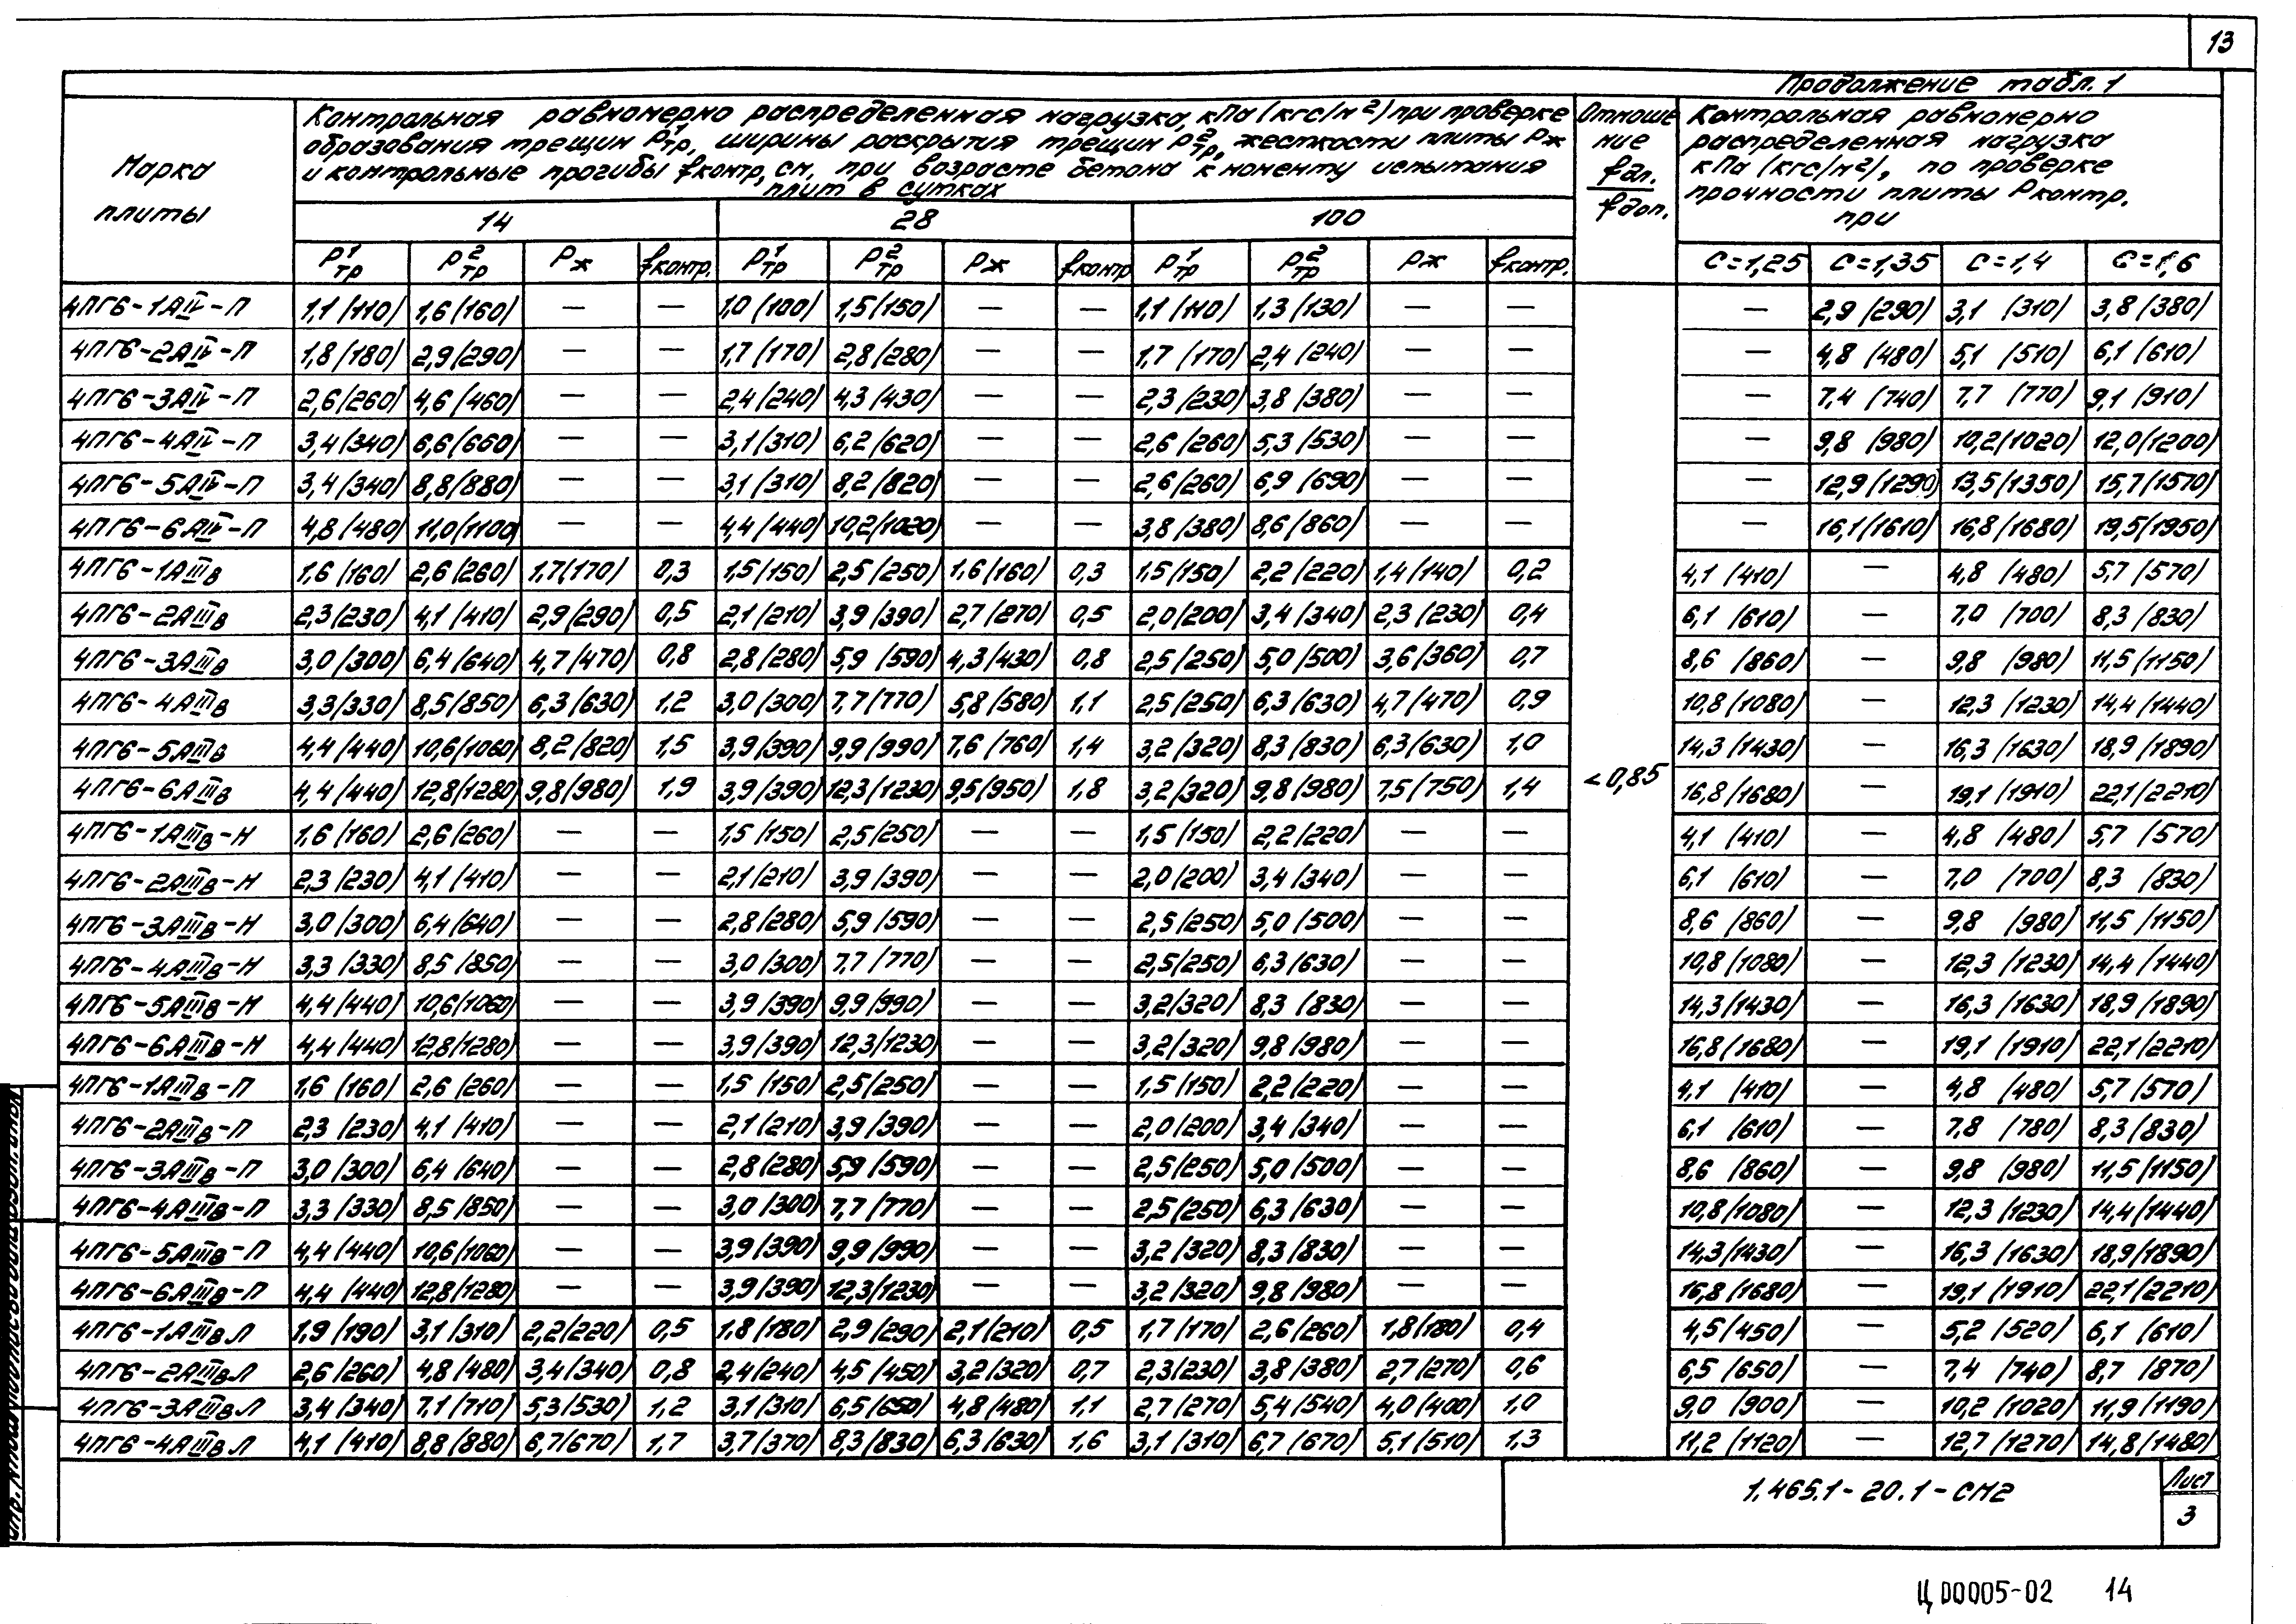 13
Продолжение табл. 1
Марка плиты
Контрольная равномерно распределенная нагрузка, кПа (кгс/м²) при проверке
образования трещин P¹тр, ширины раскрытия трещин P²тр, жесткости плиты Pж
и контрольные прогибы fконтр, см, при возрасте бетона к моменту испытания
плит в сутках
Отноше
ние
fдл.
fдоп.
Контрольная равномерно
распределенная нагрузка
кПа (кгс/м²), по проверке
прочности плиты Pконтр.
при
14 28 100
P¹тр P²тр Pж fконтр. P¹тр P²тр Pж fконтр P¹тр P²тр Pж fконтр. C=1,25 C=1,35 C=1,4 C=1,6
4ПГ6-1АIV-П 1,1(110) 1,6(160) — — 1,0(100) 1,5(150) — — 1,1(110) 1,3(130) — — — 2,9(290) 3,1(310) 3,8(380)
4ПГ6-2АIV-П 1,8(180) 2,9(290) — — 1,7(170) 2,8(280) — — 1,7(170) 2,4(240) — — — 4,8(480) 5,1(510) 6,1(610)
4ПГ6-3АIV-П 2,6(260) 4,6(460) — — 2,4(240) 4,3(430) — — 2,3(230) 3,8(380) — — — 7,4(740) 7,7(770) 9,1(910)
4ПГ6-4АIV-П 3,4(340) 6,6(660) — — 3,1(310) 6,2(620) — — 2,6(260) 5,3(530) — — — 9,8(980) 10,2(1020) 12,0(1200)
4ПГ6-5АIV-П 3,4(340) 8,8(880) — — 3,1(310) 8,2(820) — — 2,6(260) 6,9(690) — — — 12,9(1290) 13,5(1350) 15,7(1570)
4ПГ6-6АIV-П 4,8(480) 11,0(1100) — — 4,4(440) 10,2(1020) — — 3,8(380) 8,6(860) — — — 16,1(1610) 16,8(1680) 19,5(1950)
4ПГ6-1АIIIв 1,6(160) 2,6(260) 1,7(170) 0,3 1,5(150) 2,5(250) 1,6(160) 0,3 1,5(150) 2,2(220) 1,4(140) 0,2 4,1(410) — 4,8(480) 5,7(570)
4ПГ6-2АIIIв 2,3(230) 4,1(410) 2,9(290) 0,5 2,1(210) 3,9(390) 2,7(270) 0,5 2,0(200) 3,4(340) 2,3(230) 0,4 6,1(610) — 7,0(700) 8,3(830)
4ПГ6-3АIIIв 3,0(300) 6,4(640) 4,7(470) 0,8 2,8(280) 5,9(590) 4,3(430) 0,8 2,5(250) 5,0(500) 3,6(360) 0,7 8,6(860) — 9,8(980) 11,5(1150)
4ПГ6-4АIIIв 3,3(330) 8,5(850) 6,3(630) 1,2 3,0(300) 7,7(770) 5,8(580) 1,1 2,5(250) 6,3(630) 4,7(470) 0,9 10,8(1080) — 12,3(1230) 14,4(1440)
4ПГ6-5АIIIв 4,4(440) 10,6(1060) 8,2(820) 1,5 3,9(390) 9,9(990) 7,6(760) 1,4 3,2(320) 8,3(830) 6,3(630) 1,0 14,3(1430) — 16,3(1630) 18,9(1890)
4ПГ6-6АIIIв 4,4(440) 12,8(1280) 9,8(980) 1,9 3,9(390) 12,3(1230) 9,5(950) 1,8 3,2(320) 9,8(980) 7,5(750) 1,4 <0,85 16,8(1680) — 19,1(1910) 22,1(2210)
4ПГ6-1АIIIв-Н 1,6(160) 2,6(260) — — 1,5(150) 2,5(250) — — 1,5(150) 2,2(220) — — 4,1(410) — 4,8(480) 5,7(570)
4ПГ6-2АIIIв-Н 2,3(230) 4,1(410) — — 2,1(210) 3,9(390) — — 2,0(200) 3,4(340) — — 6,1(610) — 7,0(700) 8,3(830)
4ПГ6-3АIIIв-Н 3,0(300) 6,4(640) — — 2,8(280) 5,9(590) — — 2,5(250) 5,0(500) — — 8,6(860) — 9,8(980) 11,5(1150)
4ПГ6-4АIIIв-Н 3,3(330) 8,5(850) — — 3,0(300) 7,7(770) — — 2,5(250) 6,3(630) — — 10,8(1080) — 12,3(1230) 14,4(1440)
4ПГ6-5АIIIв-Н 4,4(440) 10,6(1060) — — 3,9(390) 9,9(990) — — 3,2(320) 8,3(830) — — 14,3(1430) — 16,3(1630) 18,9(1890)
4ПГ6-6АIIIв-Н 4,4(440) 12,8(1280) — — 3,9(390) 12,3(1230) — — 3,2(320) 9,8(980) — — 16,8(1680) — 19,1(1910) 22,1(2210)
4ПГ6-1АIIIв-П 1,6(160) 2,6(260) — — 1,5(150) 2,5(250) — — 1,5(150) 2,2(220) — — 4,1(410) — 4,8(480) 5,7(570)
4ПГ6-2АIIIв-П 2,3(230) 4,1(410) — — 2,1(210) 3,9(390) — — 2,0(200) 3,4(340) — — 6,1(610) — 7,8(780) 8,3(830)
4ПГ6-3АIIIв-П 3,0(300) 6,4(640) — — 2,8(280) 5,9(590) — — 2,5(250) 5,0(500) — — 8,6(860) — 9,8(980) 11,5(1150)
4ПГ6-4АIIIв-П 3,3(330) 8,5(850) — — 3,0(300) 7,7(770) — — 2,5(250) 6,3(630) — — 10,8(1080) — 12,3(1230) 14,4(1440)
4ПГ6-5АIIIв-П 4,4(440) 10,6(1060) — — 3,9(390) 9,9(990) — — 3,2(320) 8,3(830) — — 14,3(1430) — 16,3(1630) 18,9(1890)
4ПГ6-6АIIIв-П 4,4(440) 12,8(1280) — — 3,9(390) 12,3(1230) — — 3,2(320) 9,8(980) — — 16,8(1680) — 19,1(1910) 22,1(2210)
4ПГ6-1АIIIвЛ 1,9(190) 3,1(310) 2,2(220) 0,5 1,8(180) 2,9(290) 2,1(210) 0,5 1,7(170) 2,6(260) 1,8(180) 0,4 4,5(450) — 5,2(520) 6,1(610)
4ПГ6-2АIIIвЛ 2,6(260) 4,8(480) 3,4(340) 0,8 2,4(240) 4,5(450) 3,2(320) 0,7 2,3(230) 3,8(380) 2,7(270) 0,6 6,5(650) — 7,4(740) 8,7(870)
4ПГ6-3АIIIвЛ 3,4(340) 7,1(710) 5,3(530) 1,2 3,1(310) 6,5(650) 4,8(480) 1,1 2,7(270) 5,4(540) 4,0(400) 1,0 9,0(900) — 10,2(1020) 11,9(1190)
4ПГ6-4АIIIвЛ 4,1(410) 8,8(880) 6,7(670) 1,7 3,7(370) 8,3(830) 6,3(630) 1,6 3,1(310) 6,7(670) 5,1(510) 1,3 11,2(1120) — 12,7(1270) 14,8(1480)
1.465.1-20.1-СМ2
Лист
3
Ц00005-02 14